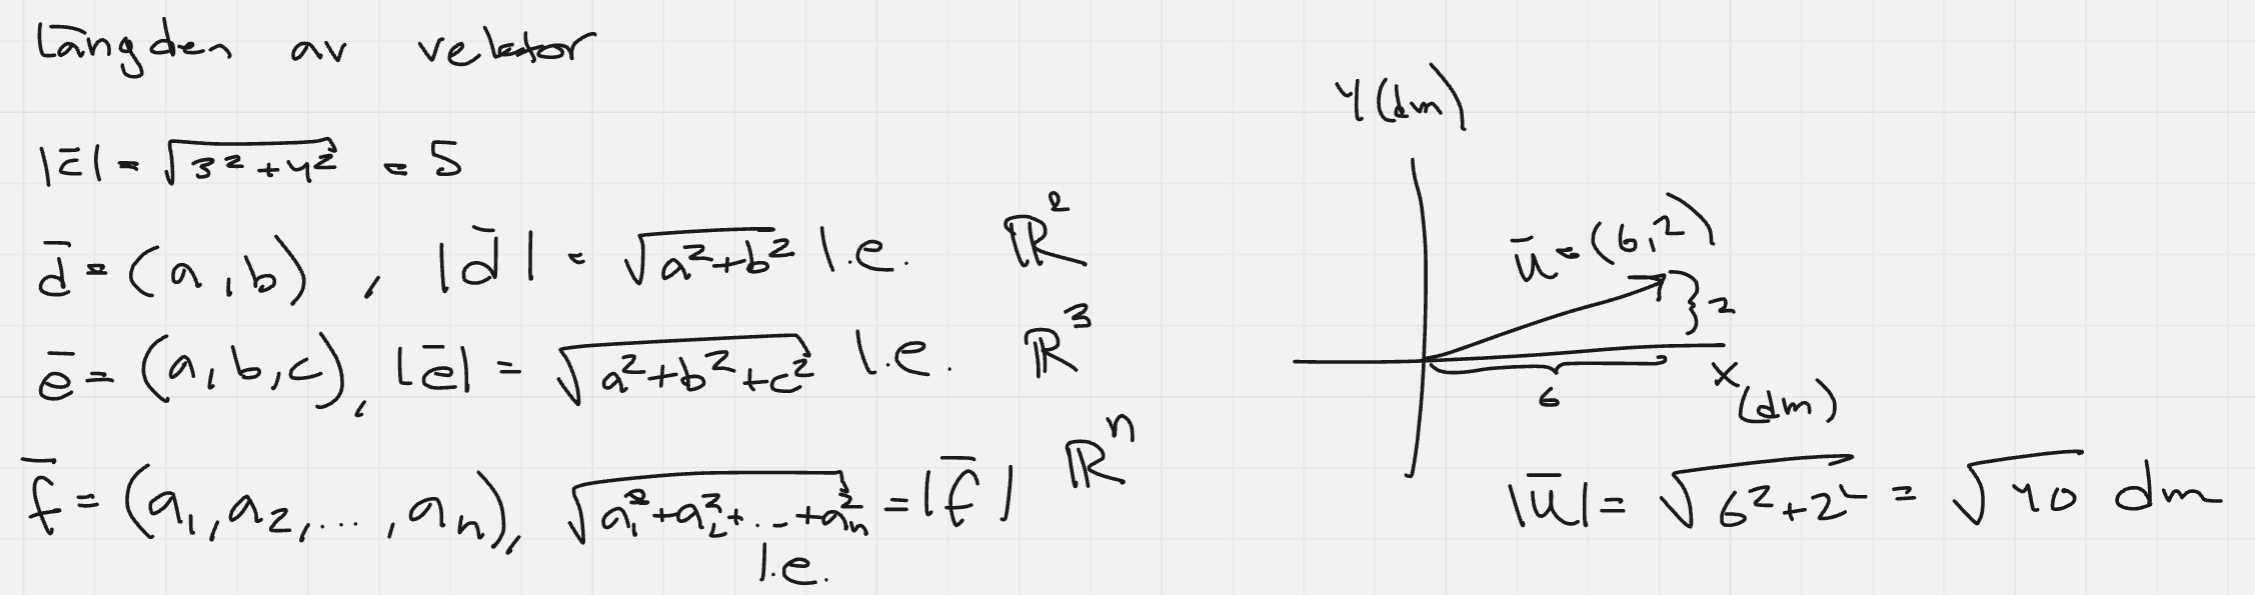 Längden av vektor
|c̄| = √(3²+4²) = 5
d̄ = (a,b) , |d̄| = √(a²+b²) l.e. ℝ²
ē = (a,b,c), |ē| = √(a²+b²+c²) l.e. ℝ³
f̄ = (a₁,a₂,...,aₙ), √(a₁²+a₂²+...+aₙ²) = |f̄| ℝⁿ
l.e.
Y(dm)
ū = (6,2)
}2
6
x (dm)
|ū| = √(6²+2²) = √40 dm